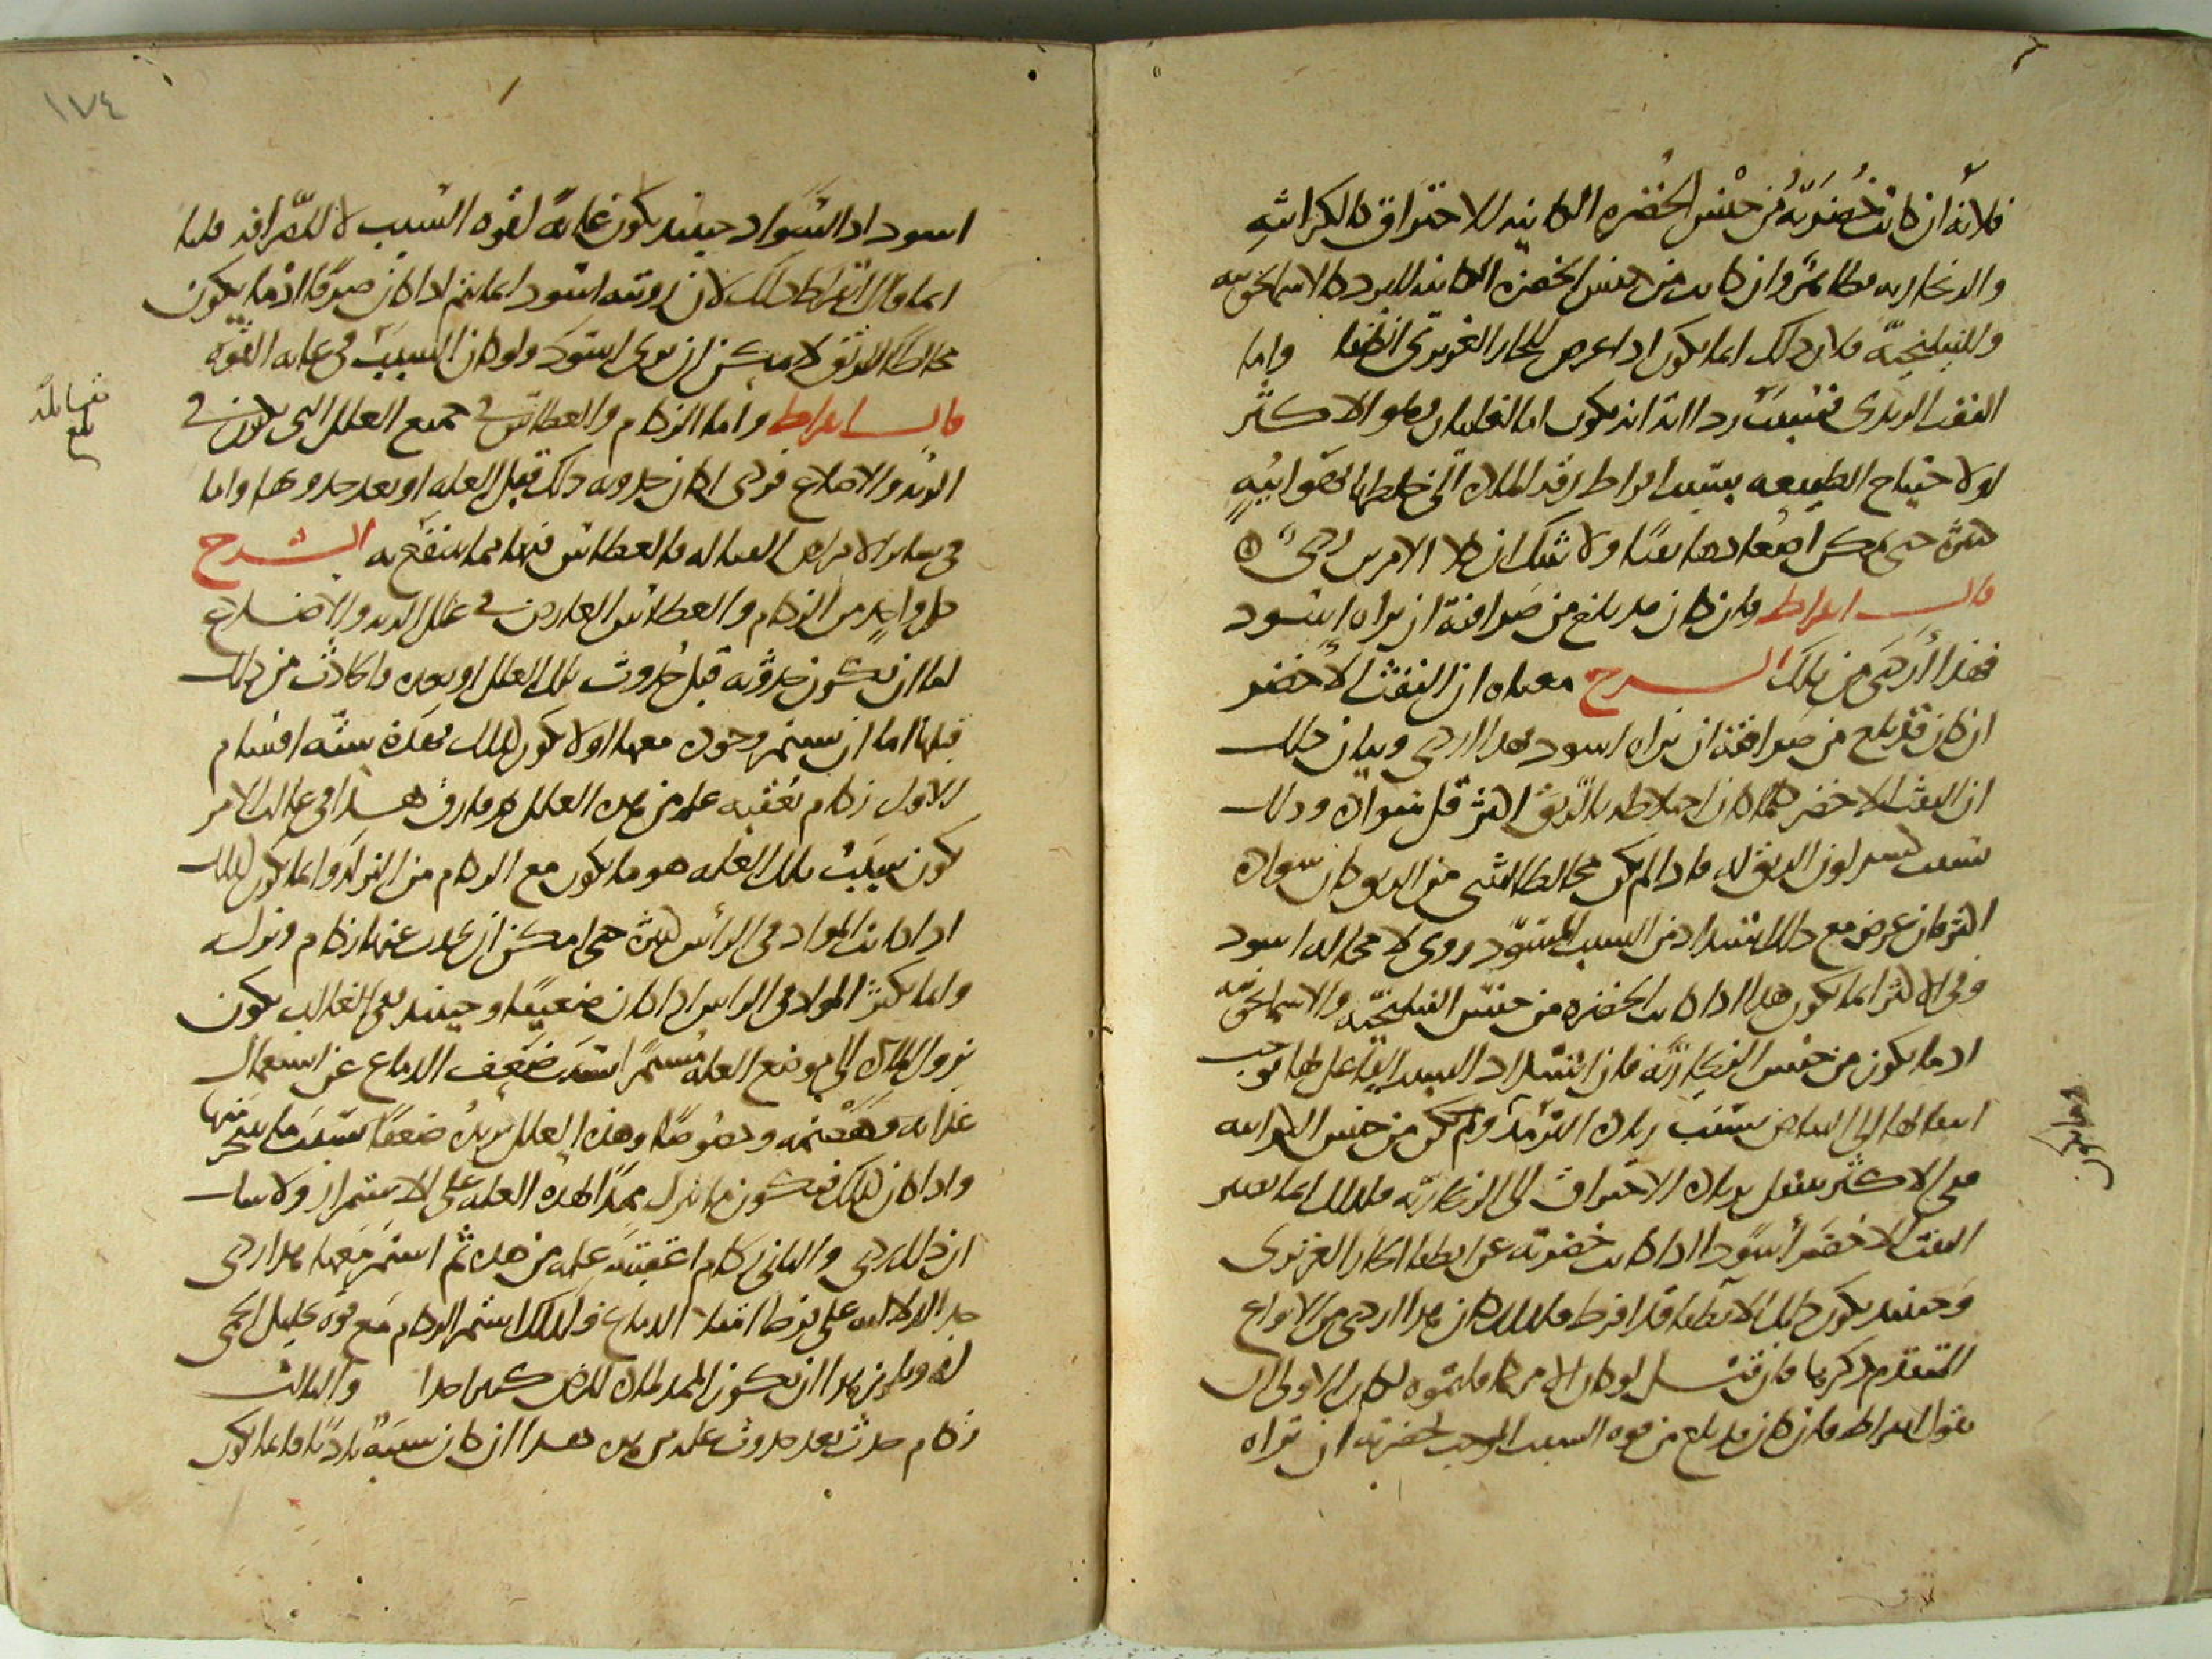 فلانه ان كانت خضرته من جنس الخضره الكاينه للاحتراق كالكراثيه
والزنجاريه فظاهر وان كانت من جنس الخضره الكاينه للبرد كالاسمانجونيه
والنيلنجيه فلان ذلك انما يكون اذا عرض للحار الغريزى انطفا واما
النفث الزبدى فسبب رداته انه يكون اما لغليان وهو الاكثر
او لاحتياج الطبيعه بسبب افراط رقه الماده الى خلطها بهوائيه
كثيره حتى يمكن اصعادها نفثا ولا شك ان كلا الامرين ردى
قال ابقراط فان كان قد بلغ من صرافته ان يراه اسود
فهذا اردى من تلك الشرح معناه ان النفث الاخضر
ان كان قد بلغ من صرافته ان يراه اسود فهذا اردى وبيان ذلك
ان النفث الاخضر كلما كان اختلاطه بالريق اكثر قل سواده وذلك
بسبب كسر لون الريق له فاذا لم يكن مخالطا لشى من الريق كان سواده
اكثر فان عرض مع ذلك اشتداد من السبب المسود روى لا محاله اسود
وفى الاكثر انما يكون هذا اذا كانت الخضره من جنس النيلنجيه والاسمانجونيه
اذ ما يكون من جنس الزنجاريه فان اشتداد السبب الفاعل لها يوجب
انتقالها الى البياض بسبب زياده الترمد وما يكون من جنس الكراثيه
ففى الاكثر ينتقل بزياده الاحتراق الى الزنجاريه فلذلك انما يصير
النفث الاخضر اسود اذا كانت خضرته عن انطفا الحار الغريزى
وحينيذ يكون ذلك الانطفا قد افرط فلذلك كان هذا اردى من الانواع
المتقدم ذكرها فان قيل لو كان الامر كما قلتموه لكان الاولى ان
يقول ابقراط فان كان قد بلغ من قوه السبب الموجب لخضرته ان تراه
١٧٤
اسود اذ السواد حينيذ يكون غايه لقوه السبب لا للصرافه قلنا
انما قال ابقراط ذلك لان رويته اسود انما يتم اذا كان صرفا اذ ما يكون
مخالطا للريق لا يمكن ان يرى اسود ولو كان السبب فى غايه القوه
قال ابقراط واما الزكام والعطاس فى جميع العلل التى تكون فى
الريه والاضلاع فردى ان كان حدوثه ذلك قبل العله او بعد حدوثها واما
فى ساير الامراض القتاله فالعطاس فيها مما ينتفع به الشرح
كل واحد من الزكام والعطاس العارض فى علل الريه والاضلاع
اما ان يكون حدوثه قبل حدوث تلك العلل او بعده والحادث من ذلك
قبلها اما ان يستمر وجوده معها او لا يكون كذلك فهذه سته اقسام
الاول زكام يعقبه عله من هذه العلل ثم فارق هذا فى غالب الامر
يكون سبب تلك العله هو ما يكون مع الزكام من النزله وانما يكون كذلك
اذا كانت المواد فى الرأس كثيره حتى امكن ان يحدث عنها زكام ونزله
وانما تكثر المواد فى الراس اذا كان ضعيفا وحينيذ ففى الغالب يكون
نزول الماده الى موضع العله مستمرا لشده ضعف الدماغ عن استعمال
غذايه وهضمه وخصوصا وهذه العلل تزيده ضعفا بسبب ما يتبخر منها
واذا كان كذلك فيكون ما ينزل ممدا لهذه العله على الاستمرار ولا شك
ان ذلك ردى والثانى زكام اعقبته عله من هذه ثم استمر معها هذا ردى
جدا للدلاله على فرط امتلا الدماغ فلذلك استمر الزكام مع قوه تحليل الحمى
له ويلزم هذا ان يكون الممد لماده المرض كثيرا جدا والثالث
زكام حدث بعد حدوث عله من هذه هذا ان كان سببه باردا فانما يكون